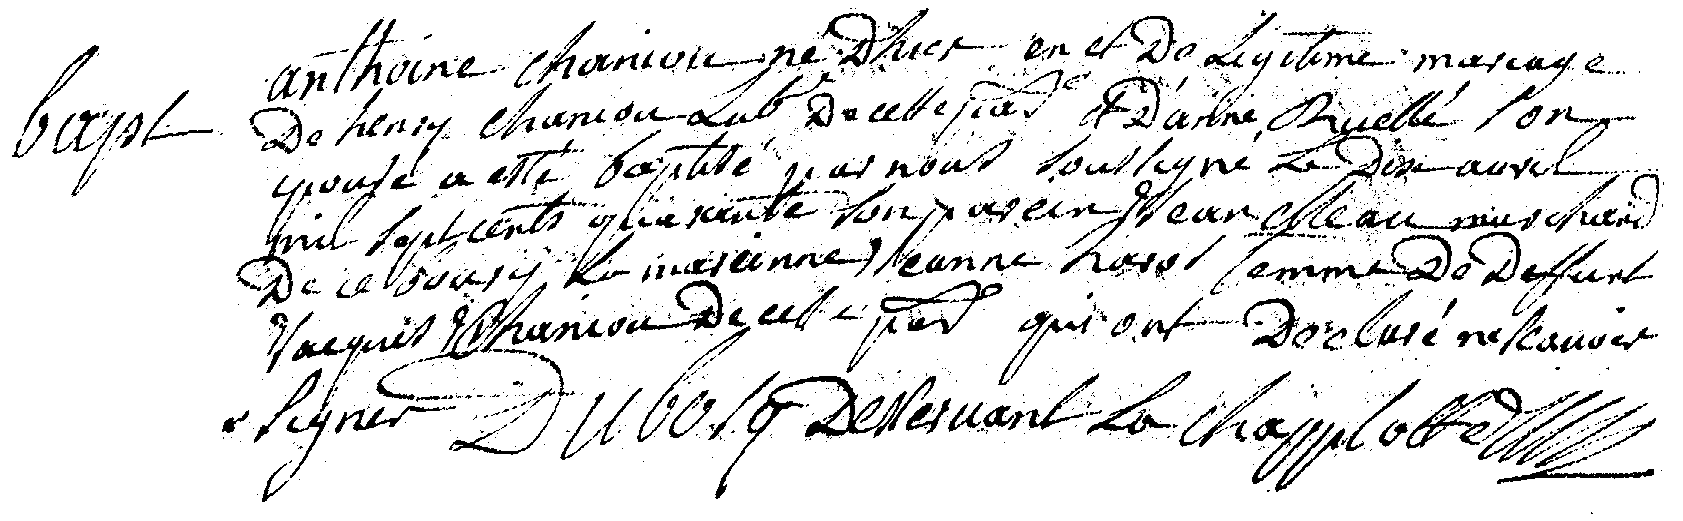 bapt
anthoine chaniou né D'hier en et De Legitime mariage
De henry chaniou Lab^r De cette par^se & D'anne Ruellé son
epouse a esté baptisé par nous soussigné Le Dix avril
mil sept cents quarante son parein Jean marchand
De ce bourg La mareinne Jeanne femme De Deffunt
Jacques Chaniou De cette par^se qui ont Declaré ne scavoir
signer Dubosq Desservant La chapplotte